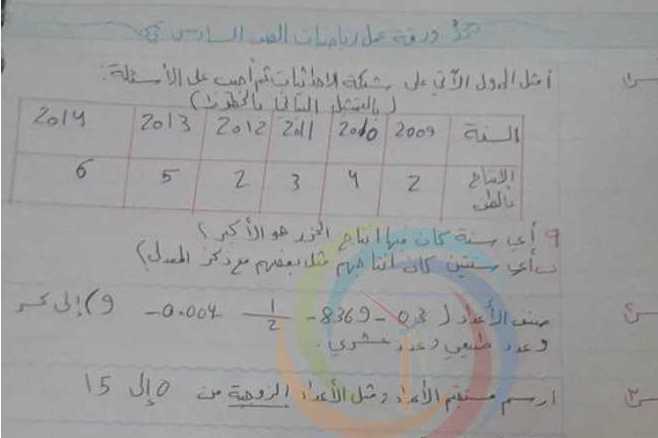 ورقة عمل رياضيات الصف السادس
س١ أمثل الجدول الآتي على شبكة الإحداثيات ثم أجيب على الأسئلة:
(بالتمثيل البياني بالخطوط)
السنة 2009 2010 2011 2012 2013 2014
الإنتاج بالطن 2 4 3 2 5 6
أي سنة كان فيها انتاج الجزر هو الأكبر؟
ب أي سنتين كان انتاجهم مثل بعضهم مع ذكر المعدل)
س٢ صنف الأعداد (0.3 - 8369 - 1/2 - 0.004 - 9) إلى كسر
وعدد طبيعي وعدد عشري.
س٣ ارسم مستقيم الأعداد ومثل الأعداد الزوجية من 0 إلى 15